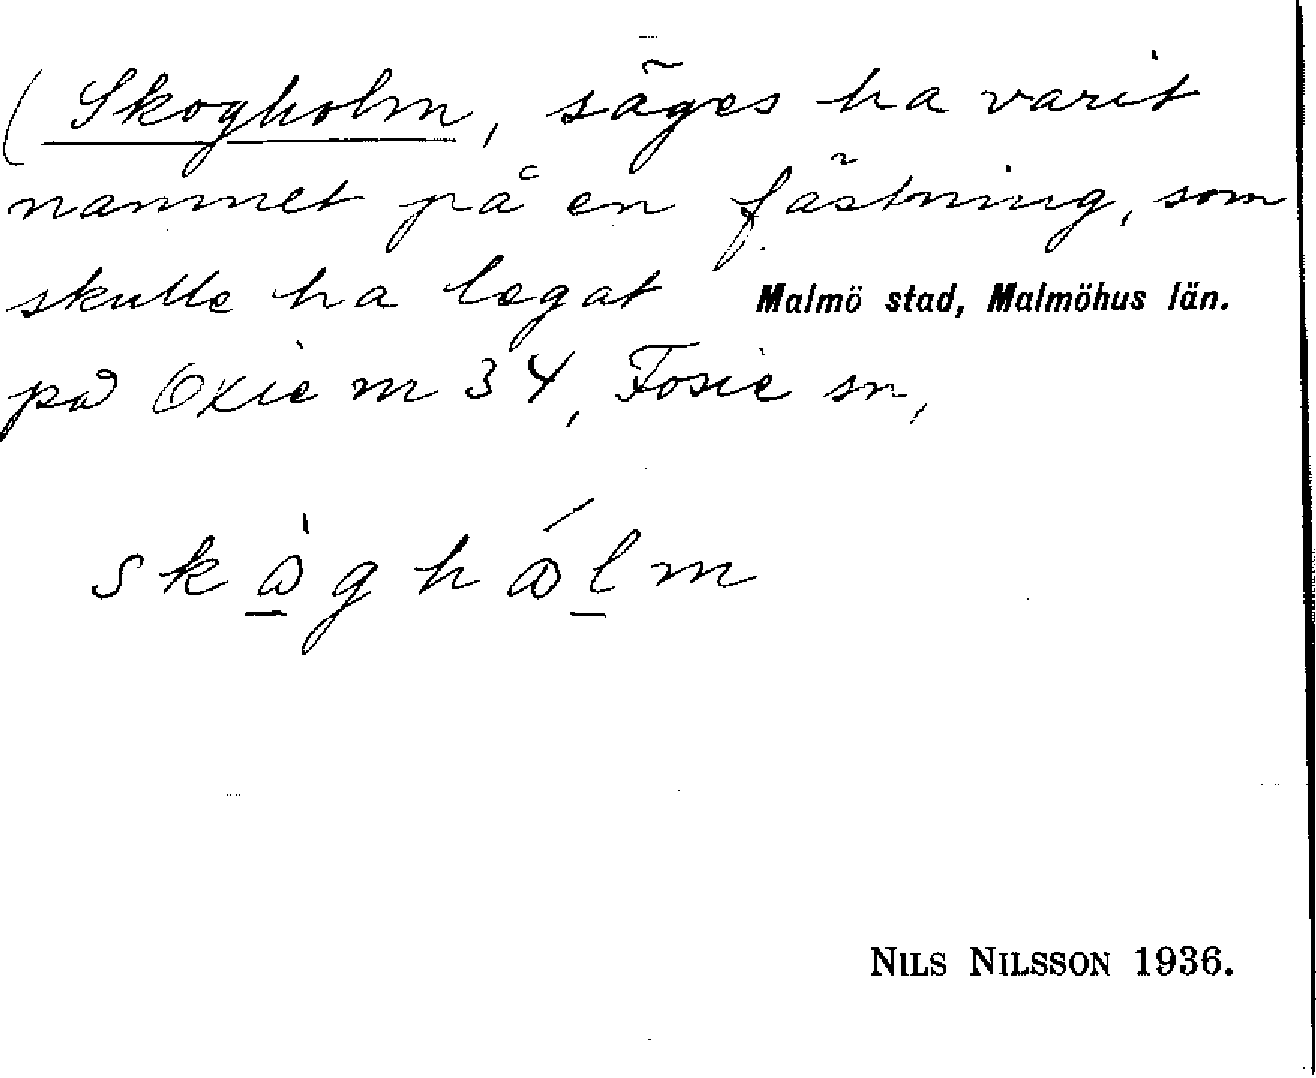 (Skogholm, säges ha varit
namnet på en fästning, som
skulle ha legat Malmö stad, Malmöhus län.
på Oxie m 34, Fosie sn,
NILS NILSSON 1936.